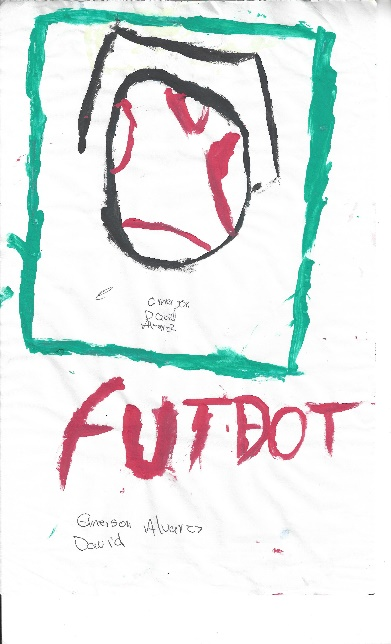 David
Alvarez
FUTBOT
Emerson Alvarez
David